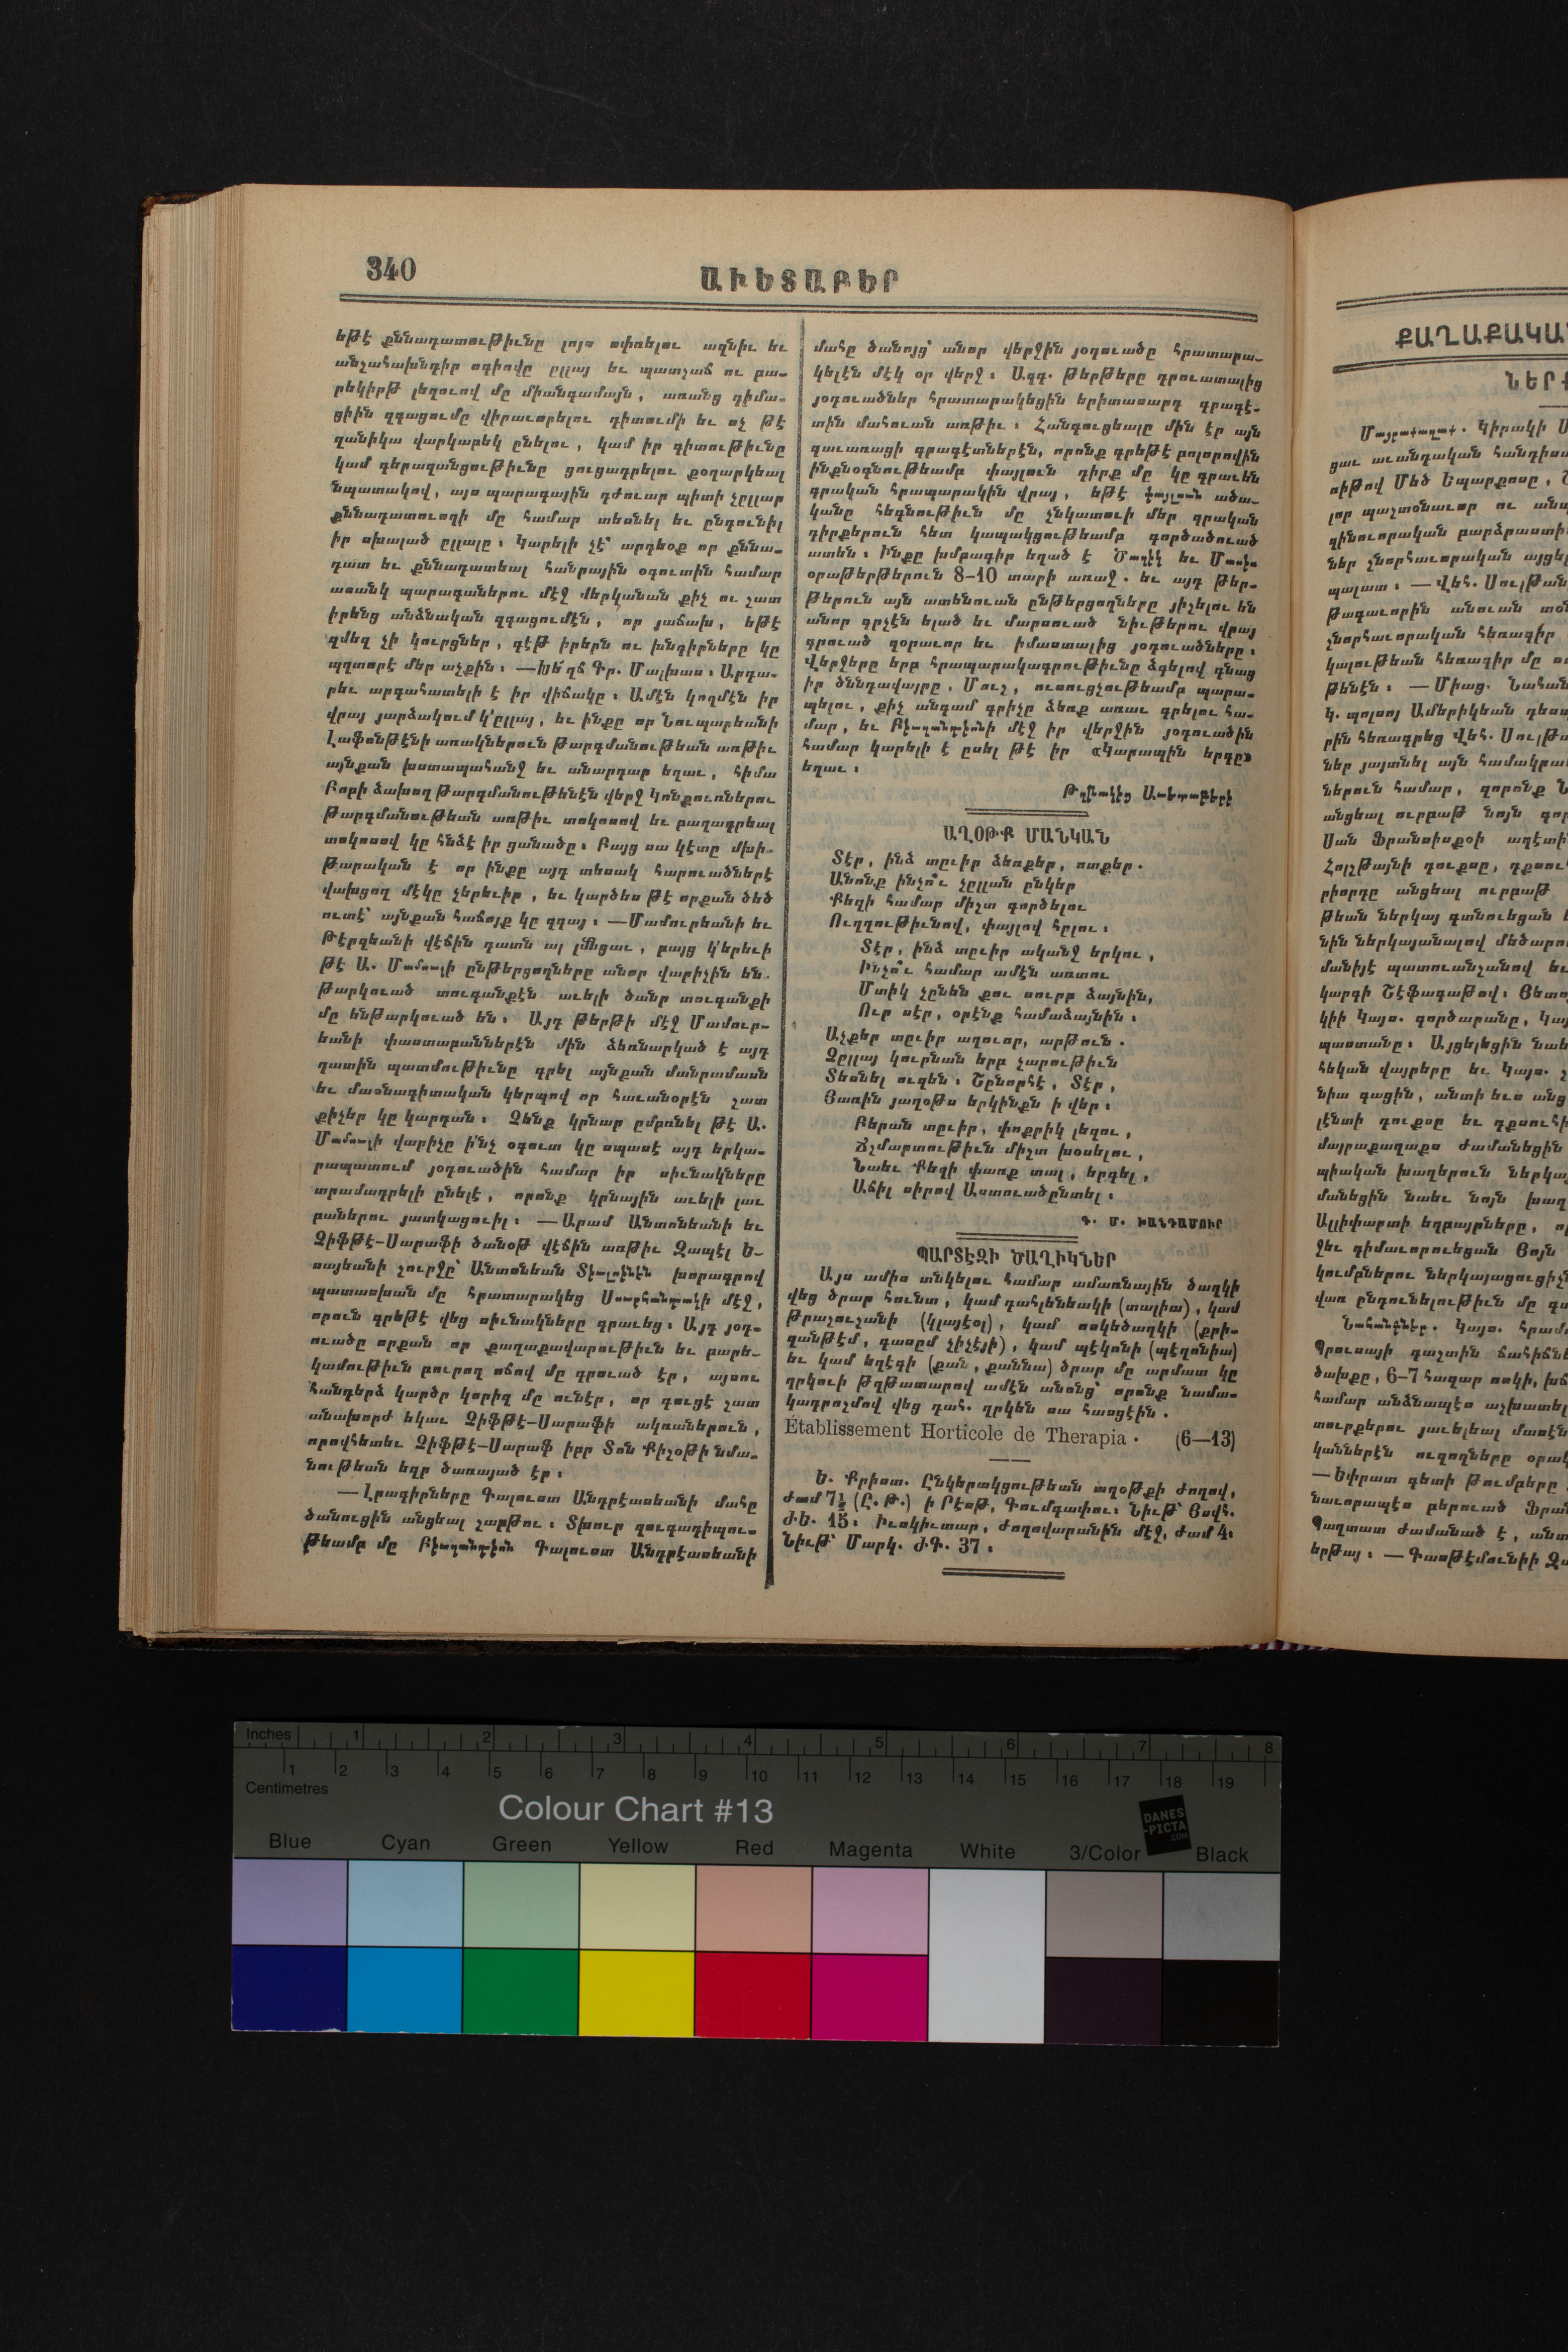 340
ԱՒԵՏԱԲԵՐ
եթէ քննադատութիւնը լոյս սփռելու ազնիւ եւ
անշահախնդիր ոգիովը ըլլայ եւ պատշաճ ու բա-
րեկիրթ լեզուով մը միանգամայն, առանց դիմա-
ցիին զգացումը վիրաւորելու դիտումի եւ ոչ թէ
զանիկա վարկաբեկ ընելու, կամ իր գիտութիւնը
կամ գերազանցութիւնը ցուցադրելու քօղարկեալ
նպատակով, այս պարագային դժուար պիտի չըլլար
քննադատուողի մը համար տեսնել եւ ընդունիլ
իր սխալած ըլլալը։ Կարելի չէ՞ արդեօք որ քննա-
դատ եւ քննադատեալ հանրային օգուտին համար
ասանկ պարագաներու մէջ մերկանան քիչ ու շատ
իրենց անձնական զգացումէն, որ յաճախ, եթէ
զմեզ չի կուրցներ, գէթ իրերն ու խնդիրները կը
պղտորէ մեր աչքին։ —Խե՜ղճ Գր. Մալխաս։ Արդա-
րեւ արգահատելի է իր վիճակը։ Ամէն կողմէն իր
վրայ յարձակում կ'ըլլայ, եւ ինքը որ Նուպարեանի
Լաֆոնթէնի առակներուն թարգմանութեան առթիւ
այնքան խստապահանջ եւ անարդար եղաւ, հիմա
Բորի ձախող թարգմանութենէն վերջ Կոնքուռներու
թարգմանութեան առթիւ տոկոսով եւ բաղադրեալ
տոկոսով կը հնձէ իր ցանածը։ Բայց սա կէտը մխի-
թարական է որ ինքը այդ տեսակ հարուածներէ
վախցող մէկը չերեւիր, եւ կարծես թէ որքան ծեծ
ուտէ՝ այնքան հաճոյք կը զգայ։ —Մամուրեանի եւ
Թէրզեանի վէճին դատն ալ լմնցաւ, բայց կ'երեւի
թէ Ա. Մամուլի ընթերցողները անոր վարիչին են-
թարկուած տուգանքէն աւելի ծանր տուգանքի
մը ենթարկուած են։ Այդ թերթի մէջ Մամուր-
եանի փաստաբաններէն մին ձեռնարկած է այդ
դատին պատմութիւնը գրել այնքան մանրամասն
եւ մասնագիտական կերպով որ հաւանօրէն շատ
քիչեր կը կարդան։ Չենք կրնար ըմբռնել թէ Ա.
Մամուլի վարիչը ի՛նչ օգուտ կը սպասէ այդ երկա-
րապատում յօդուածին համար իր սիւնակները
տրամադրելի ընելէ, որոնք կրնային աւելի լաւ
բաներու յատկացուիլ։ —Արամ Անտոնեանի եւ
Չիֆթէ-Սարաֆի ծանօթ վէճին առթիւ Զապէլ Ե-
սայեանի շուրջը՝ Անտոնեան Տիւալոկնէն խորագրով
պատասխան մը հրատարակեց Սուրհանդակի մէջ,
որուն գրեթէ վեց սիւնակները գրաւեց։ Այդ յօդ-
ուածը որքան որ քաղաքավարութիւն եւ բարե-
կամութիւն բուրող ոճով մը գրուած էր, այսու
հանդերձ կարծր կորիզ մը ունէր, որ գուցէ շատ
անախորժ եկաւ Չիֆթէ-Սարաֆի ակռաներուն,
որովհետեւ Չիֆթէ-Սարաֆ իբր Տոն Քիշօթի նմա-
նութեան եղբ ծառայած էր։
—Լրագիրները Գալուստ Անդրէասեանի մահը
ծանուցին անցեալ շաբթու։ Տխուր զուգադիպու-
թեամբ մը Բիւզանդիոն Գալուստ Անդրէասեանի
մահը ծանոյց՝ անոր վերջին յօդուածը հրատարա-
կելէն մէկ օր վերջ։ Ազգ. թերթերը դրուատալից
յօդուածներ հրատարակեցին երիտասարդ գրագէ-
տին մահուան առթիւ։ Հանգուցեալը մին էր այն
գաւառացի գրագէտներէն, որոնք գրեթէ բոլորովին
ինքնօգնութեամբ փայլուն դիրք մը կը գրաւեն
գրական հրապարակին վրայ, եթէ փայլուն ածա-
կանը հեգնութիւն մը չնկատուի մեր գրական
դիրքերուն հետ կապակցութեամբ գործածուած
ատեն։ Ինքը խմբագիր եղած է Ծաղիկ եւ Մասիս
օրաթերթերուն 8-10 տարի առաջ. եւ այդ թեր-
թերուն այն ատենուան ընթերցողները յիշելու են
անոր գրչէն ելած եւ մարսուած նիւթերու վրայ
գրուած զօրաւոր եւ իմաստալից յօդուածները։
Վերջերը երբ հրապարակագրութիւնը ձգելով գնաց
իր ծննդավայրը, Մուշ, ուսուցչութեամբ պարա-
պելու, քիչ անգամ գրիչը ձեռք առաւ գրելու հա-
մար, եւ Բիւզանդիոնի մէջ իր վերջին յօդուածին
համար կարելի է ըսել թէ իր «Կարապին երգը»
եղաւ։
Թղթակից Աւետաբերի
ԱՂՕԹՔ ՄԱՆԿԱՆ
Տէր, ինձ տըւիր ձեռքեր, ոտքեր.
Անոնք ինչո՞ւ չըլլան ընկեր
Քեզի համար միշտ գործելու
Ուղղութիւնով, փայլով հըլու։
Տէր, ինձ տըւիր ականջ երկու,
Ինչո՞ւ համար ամէն առտու
Մտիկ չընեն քու սուրբ ձայնին,
Ուր սէր, օրէնք համաձայնին։
Աչքեր տըւիր աղուոր, արթուն.
Չըլլայ կուրնան երբ չարութիւն
Տեսնել ուզեն։ Շընորհէ, Տէր,
Յառին յաղօթս երկինքն ի վեր։
Բերան տըւիր, փոքրիկ լեզու,
Ճշմարտութիւն միշտ խօսելու,
Նաեւ Քեզի փառք տալ, երգել,
Աճիլ սիրով Աստուածընտել։
Գ. Մ. ԽԱՆԴԱՄՈՒՐ
ՊԱՐՏԷԶԻ ԾԱՂԻԿՆԵՐ
Այս ամիս տնկելու համար ամառնային ծաղկի
վեց ծրար հունտ, կամ դահլենեակի (տալիա), կամ
թրաշուշանի (կլայէօլ), կամ ոսկեծաղկի (քրի-
զանթէմ, գասըմ չիչէյի), կամ պէկոնի (պէղոնիա)
եւ կամ եղէգի (քան, քաննա) ծրար մը արմատ կը
ղրկուի թղթատարով ամէն անոնց՝ որոնք նամա-
կադրոշմով վեց դահ. ղրկեն սա հասցէին.
Établissement Horticole de Therapia. (6—13)
Ե. Քրիստ. Ընկերակցութեան աղօթքի ժողով,
ժամ 7½ (Ը. Թ.) ի Րէսթ, Գումգափու։ Նիւթ՝ Յովհ.
ԺԵ. 15։ Իւսկիւտար, Ժողովարանին մէջ, ժամ 4։
Նիւթ՝ Մարկ. ԺԳ. 37։
Inches 1 2 3 4 5 6 7 8
1 2 3 4 5 6 7 8 9 10 11 12 13 14 15 16 17 18 19
Centimetres
Colour Chart #13
DANES
-PICTA
.COM
Blue Cyan Green Yellow Red Magenta White 3/Color Black